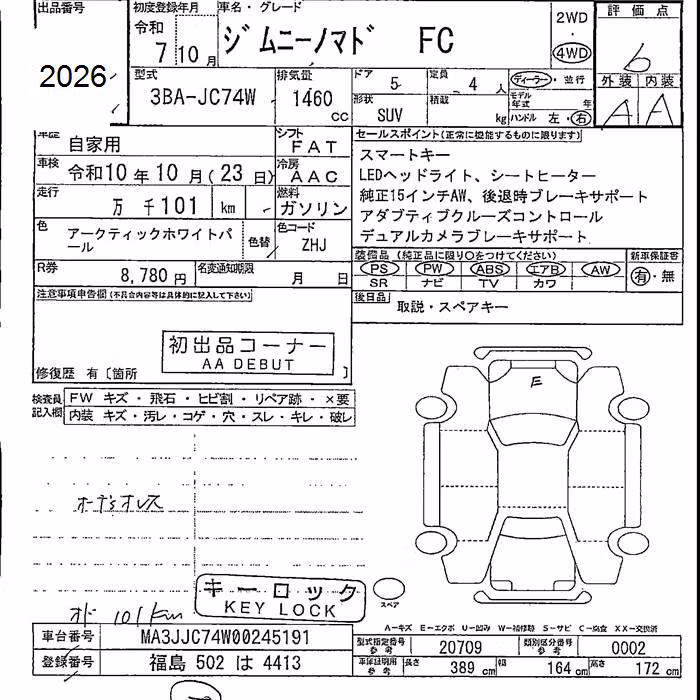 出品番号 初度登録年月 車名・グレード 2WD 評価点
2026 令和 7 10月 ジムニーノマド FC 4WD 6
型式 排気量 ドア 5 定員 4人 ディーラー・並行 外装 内装
3BA-JC74W 1460 cc 形状 SUV 積載 kg モデル年式 年 ハンドル 左・右 A A
車歴 自家用 シフト FAT セールスポイント(正常に機能するものに限ります)
車検 令和10年10月(23日) 冷房 AAC スマートキー
LEDヘッドライト、シートヒーター
走行 万 千101 km 燃料 ガソリン 純正15インチAW、後退時ブレーキサポート
アダプティブクルーズコントロール
色 アークティックホワイトパール 色替 色コード ZHJ デュアルカメラブレーキサポート
装備品(純正品に限り○をつけてください) 新車保証書
R券 8,780円 名変通知期限 月 日 PS PW ABS エアB AW 有・無
SR ナビ TV カワ
注意事項申告欄(不具合内容等は具体的に記入して下さい) 後日品 取説・スペアキー
初出品コーナー
AA DEBUT
修復歴 有〔箇所 〕
検査員記入欄 FW キズ・飛石・ヒビ割・リペア跡・×要
内装 キズ・汚レ・コゲ・穴・スレ・キレ・破レ
E
オーディオレス
キーロック
KEY LOCK
スペア
オド 101km
A－キズ E－エクボ U－凹み W－補修跡 S－サビ C－腐食 XX－交換済
車台番号 MA3JJC74W00245191 型式指定番号参考 20709 類別区分番号参考 0002
登録番号 福島 502 は 4413 車庫証明用参考 長さ 389cm 幅 164cm 高さ 172cm